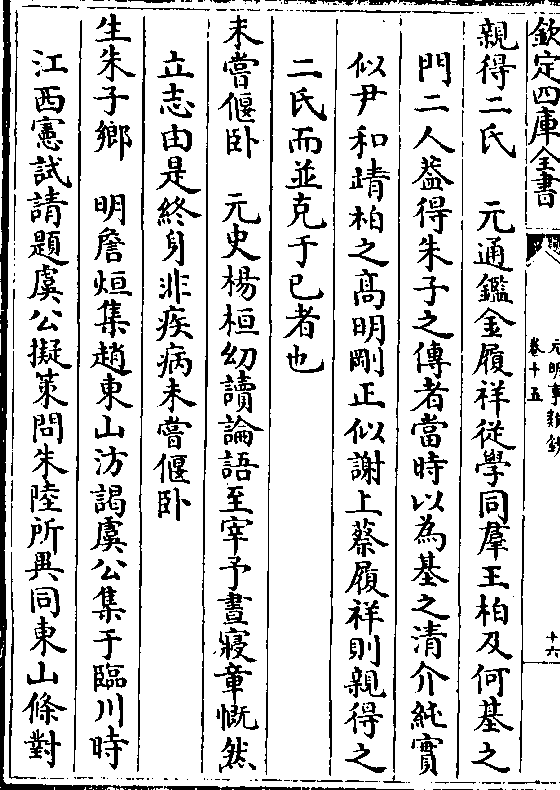 欽定四庫全書
元明事類鈔
卷十五
十六
親得二氏　元通鑑金履祥從學同羣王柏及何基之
門二人葢得朱子之傳者當時以為基之清介純實
似尹和靖柏之髙明剛正似謝上蔡履祥則親得之
二氏而並克于已者也
未嘗偃卧　元史楊桓㓜讀論語至宰予晝寢章慨然
立志由是終身非疾病未嘗偃卧
生朱子鄉　明詹烜集趙東山汸謁虞公集于臨川時
江西憲試請題虞公擬策問朱陸所異同東山條對